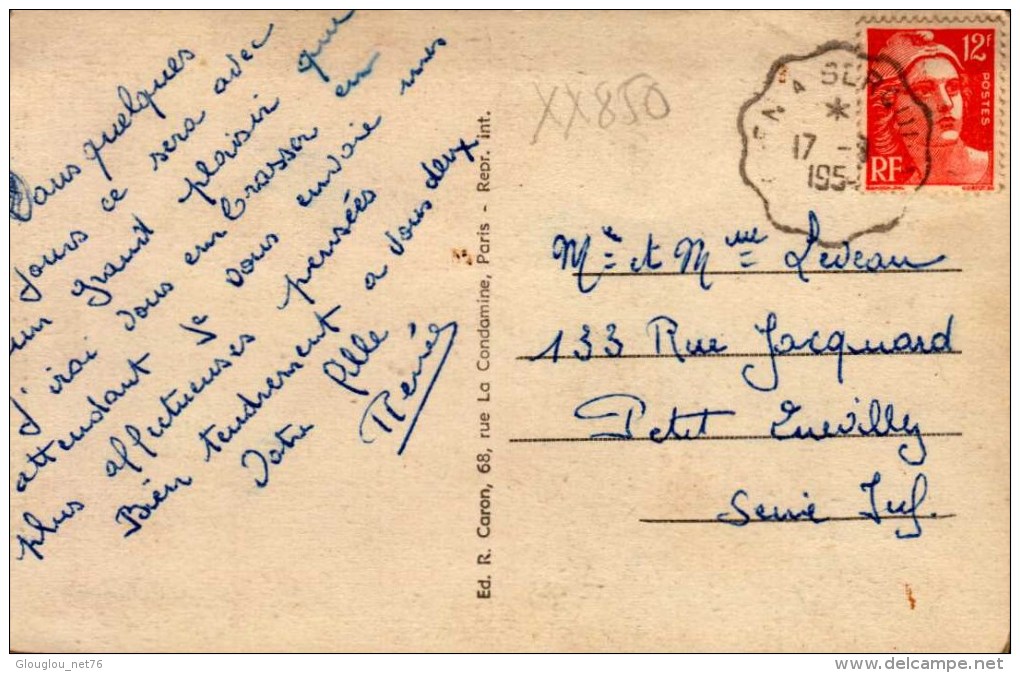 Dans quelques
jours ce sera avec
un grand plaisir que
j'irai vous embrasser en
attendant je vous envoie mes
plus affectueuses pensées
Bien tendrement à vous deux
Votre fille
Renée
Ed. R. Caron, 68, rue La Condamine, Paris - Repr. int.
XX850
17 -
195
12F
POSTES
RF
Mr et Mme Leveau
133 Rue Jacquard
Petit Quevilly
Seine Inf.
Glouglou_net76
www.delcampe.net